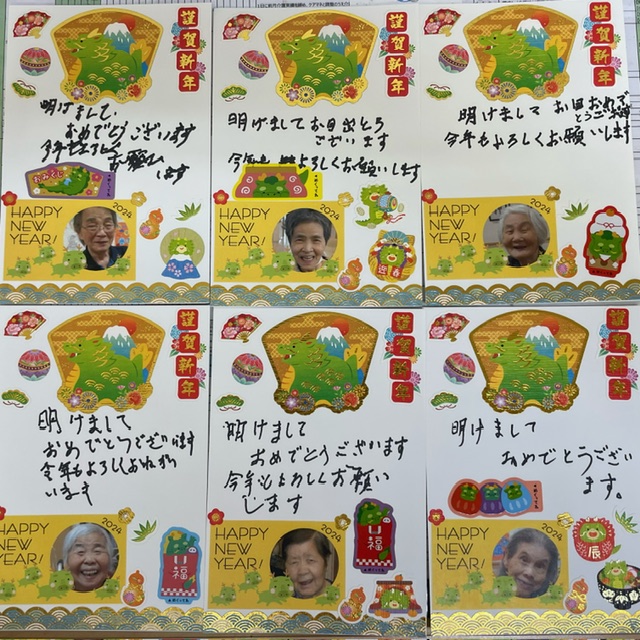 謹賀新年
明けまして
おめでとうございます
今年もよろしく
お願い
します
おみくじ
HAPPY
NEW
YEAR!
2024
謹賀新年
明けましてお目出とう
ございます
今年も よろしくお願いします
HAPPY
NEW
YEAR!
2024
迎春
謹賀新年
明けまして お目おめで
とうございます
今年もよろしくお願いします
HAPPY
NEW
YEAR!
2024
謹賀新年
明けまして
おめでとうございます
今年もよろしくおねがい
います
HAPPY
NEW
YEAR!
2024
福
謹賀新年
明けまして
おめでとうごやいます
今年もよろしくお願い
します
HAPPY
NEW
YEAR!
2024
福
謹賀新年
明けまして
おめでとうござい
ます。
HAPPY
NEW
YEAR!
2024
辰